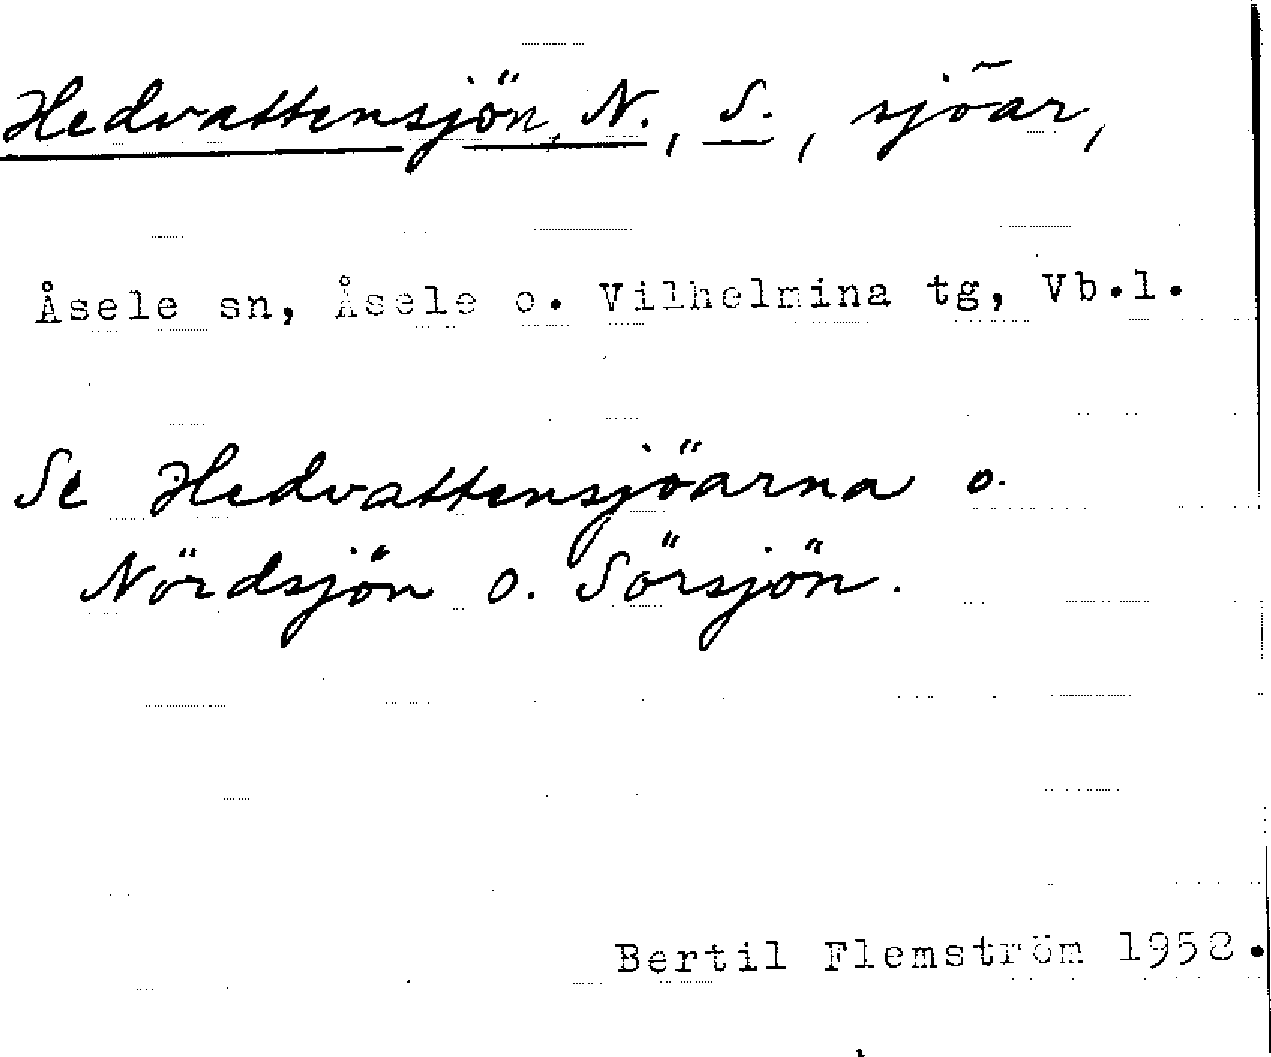 Hedvattensjön, N., S., sjöar,
Åsele sn, Åsele o. Vilhelmina tg, Vb.l.
Se Hedvattensjöarna o.
Nördsjön o. Sörsjön.
Bertil Flemström 1952.